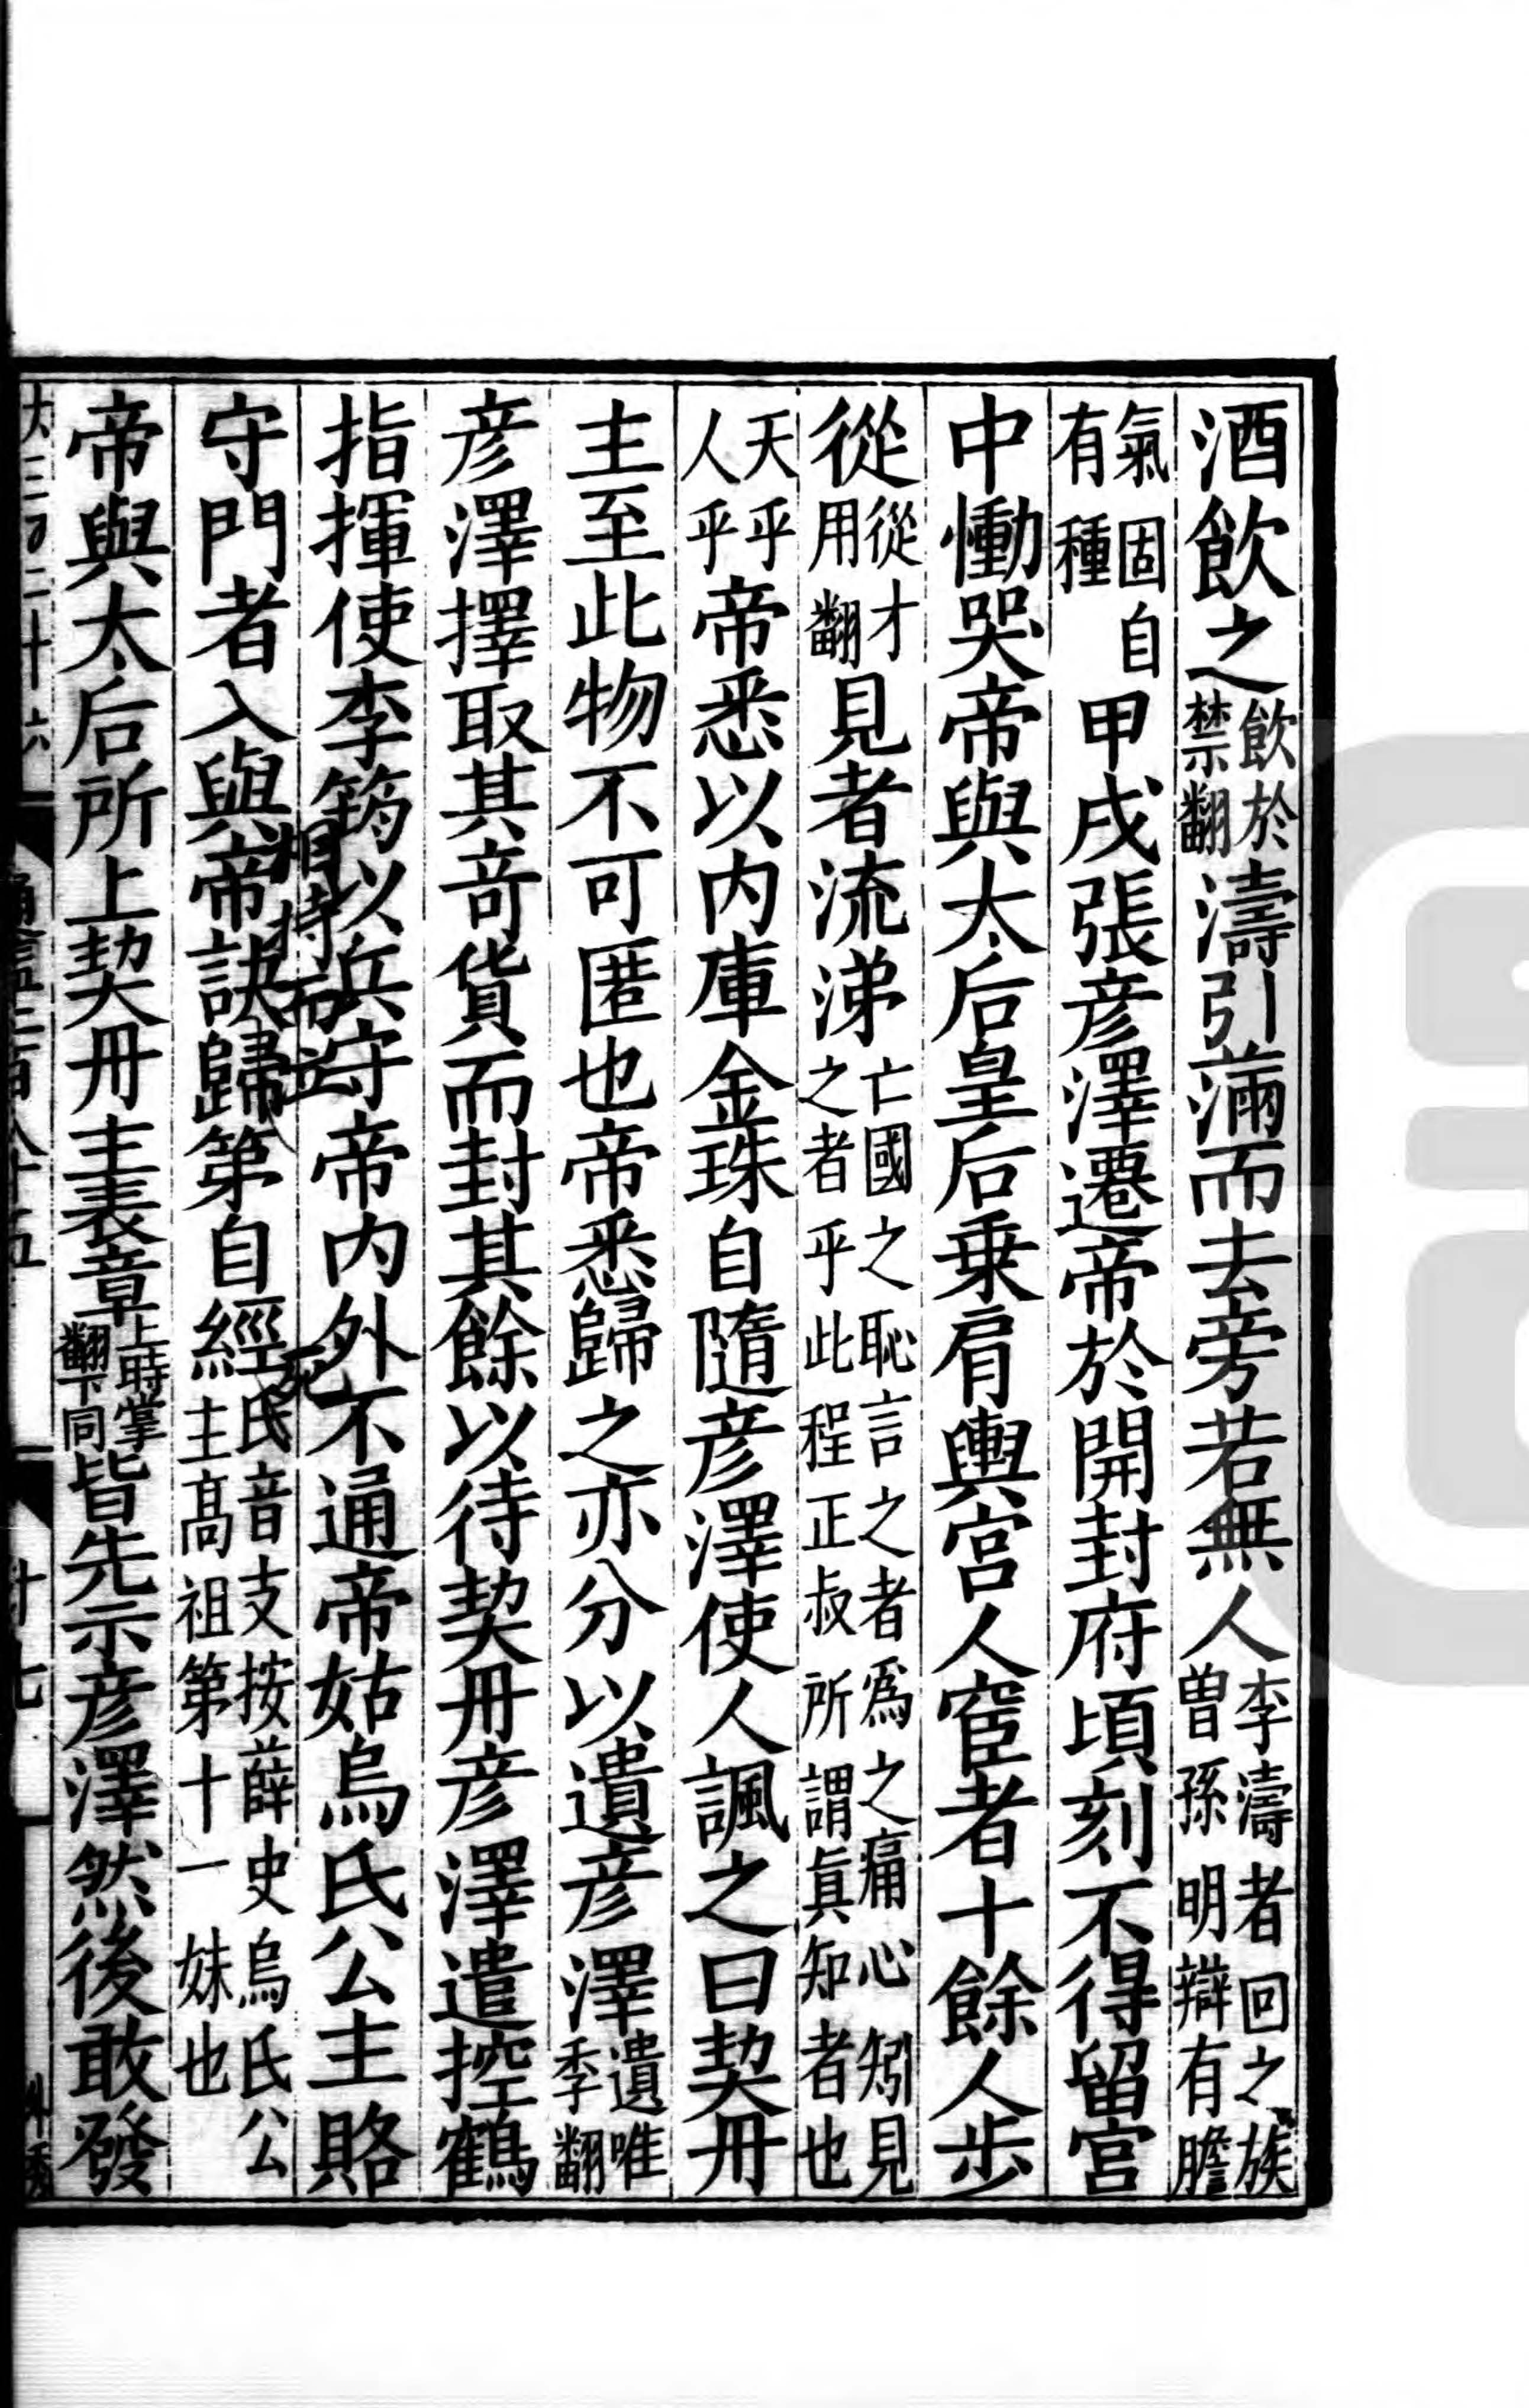 酒飲之飲於禁翻濤引滿而去旁若無人李濤者回之族曽孫明辯有膽
氣固自有種甲戌張彥澤遷帝於開封府頃刻不得留宮
中慟哭帝與太后皇后乗肩輿宮人宦者十餘人步
從從才用翻見者流涕亡國之恥言之者爲之痛心矧見之者乎此程正叔所謂眞知者也
天乎人乎帝悉以内庫金珠自隨彥澤使人諷之曰契丹
主至此物不可匿也帝悉歸之亦分以遺彥澤遺唯季翻
彥澤擇取其奇貨而封其餘以待契丹彥澤遣控鶴
指揮使李筠以兵守帝内外不通帝姑烏氏公主賂
相持而泣
死
守門者入與帝訣歸第自經氏音支按薛史烏氏公主髙祖第十一妹也
帝與太后所上契丹主表章上時掌翻下同皆先示彥澤然後敢發